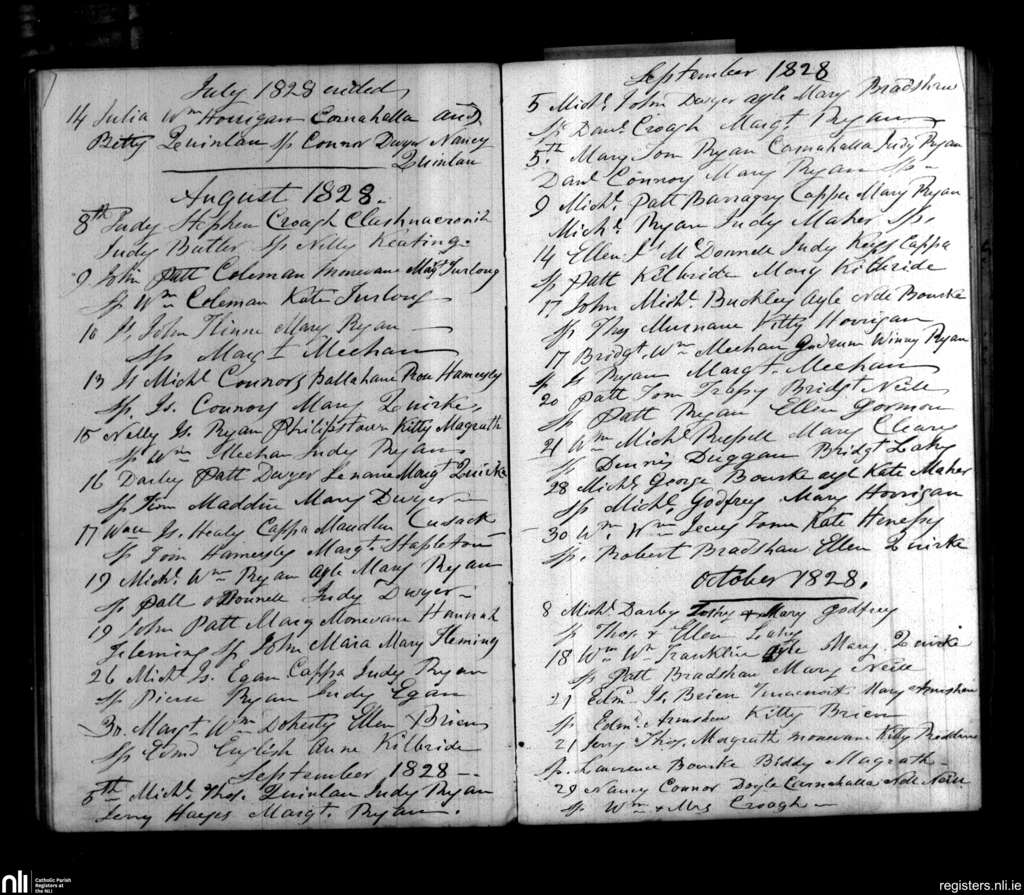 July 1828 ended
14 Julia Wm Horrigan Cornahalla and
Betty Quinlan Sp Connor Dwyer Nancy
Quinlan
August 1828.
8th Judy Stephen Croagh Clashnacronih
Judy Butler Sp Nelly Keating.
9 John Patt Coleman Monevane Margt Furlong
Sp Wm Coleman Kate Furlong
10 Js John Kinna Mary Ryan
Sp Mary Meehan
13 Js Michl Connors Ballahane Hamersly
Sp. Js. Connors Mary Quirke
15 Nelly Js. Ryan Philipstown Kitty Magrath
Sp Wm Meehan Judy Ryan
16 Darby Patt Dwyer Margt Quirke
Sp Tom Maddin Mary Dwyer
17 Js. Healy Cappa Maudlin Cusack
Sp Tom Hamersley Margt. Stapleton
19 Michl. Wm Ryan ayle Mary Ryan
Sp Patt o Donnell Judy Dwyer
19 John Patt Mara Monevane Hannah
Fleming Sp John Mara Mary Fleming
26 Michl Js. Egan Cappa Judy Ryan
Sp Pierse Ryan Judy Egan
30 Margt Wm Doherty Ellen Brien
Sp Edmd English Anne Kilbride
September 1828
5th Michl. Thos. Quinlan Judy Ryan
Jerry Hayes Margt. Ryan.
September 1828
5 Michl John Dwyer ayle Mary Bradshaw
Sp Danl Croagh Margt. Ryan
5th Mary Tom Ryan Carnahalla Judy Ryan
Danl Connors Mary Ryan Sp
9 Michl. Patt Barragry Cappa Mary Ryan
Michl. Ryan Judy Maher Sp.
14 Ellen Js McDonnell Judy Keys Cappa
Sp Patt Kilbride Mary Kilbride
17 John Michl. Buckley Ayle Nelly Bourke
Sp Thos Murnane Kitty Horrigan
17 Bridgt. Wm Meehan Winny Ryan
Sp Js Ryan Margt. Meehan
20 Patt Tom Trassy Bridgt Neill
Sp Patt Ryan Ellen Gorman
21 Wm Michl Russell Mary Cleary
Sp Dennis Duggan Bridgt Lahy
28 Michl. George Bourke ayle Kate Maher
Sp Michl. Godfrey Mary Horrigan
30 Wm. Wm Toem Kate Henessy
Sp. Robert Bradshaw Ellen Quirke
October 1828.
8 Michl Darby Mary Godfrey
Sp Thos. & Ellen Lahy
18 Wm Wm Franklin Ayle Mary Quirke
Sp Patt Bradshaw Mary Neill
21 Edmd Js. Brien Mary
Sp. Edmd. Kitty Brien
21 Jerry Thos. Magrath Monevane Kitty
Sp. Laurence Bourke Biddy Magrath
29 Nancy Connor Doyle Carnahalla Neill
Sp Wm & Mrs Croagh
nli
Catholic Parish
Registers at
the NLI
registers.nli.ie